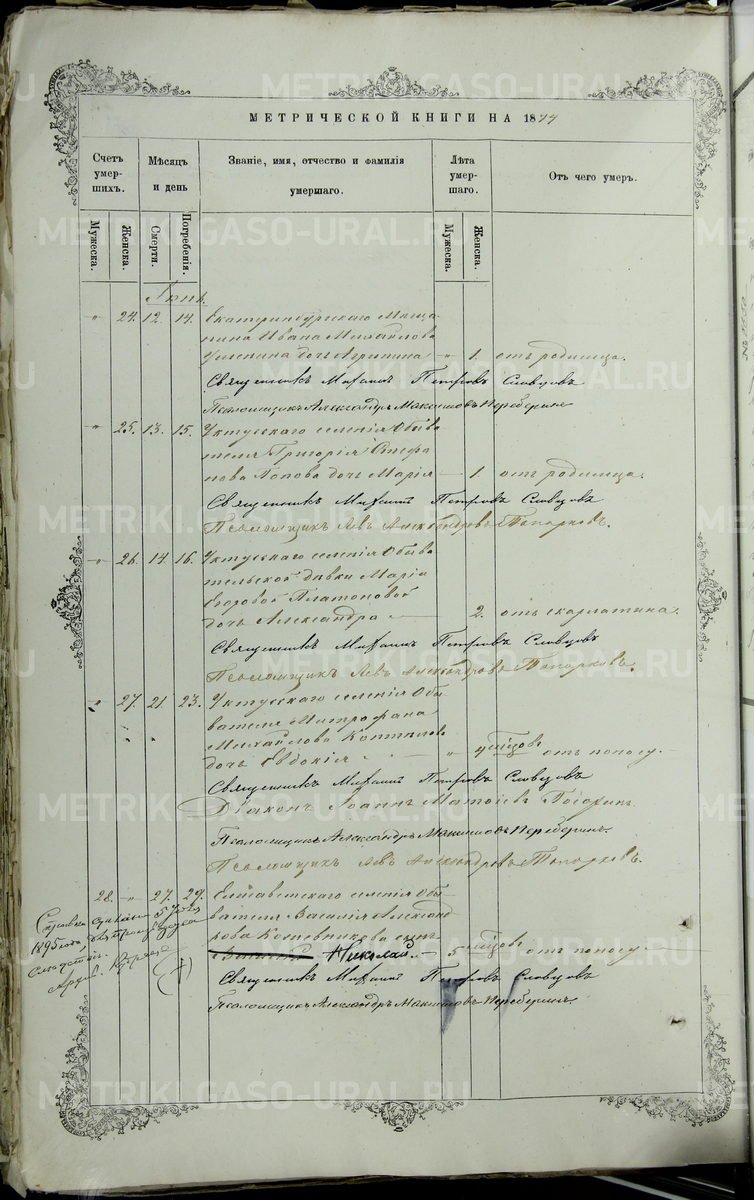 МЕТРИЧЕСКОЙ КНИГИ НА 1877
Счетъ умершихъ.
Мѣсяцъ и день
Званіе, имя, отчество и фамилія умершаго.
Лѣта умершаго.
Отъ чего умеръ.
Мужеска.
Женска.
Смерти.
Погребенія.
Мужеска.
Женска.
" 24. 12. 14. Екатеринбургскаго Мѣща-
нина Ивана Михайлова
дочь Агрипина " 1. отъ родимца.
Священникъ Михаилъ Петровъ Словцовъ
Псаломщикъ Александръ Максимовъ Переберинъ
" 25. 13. 15. Уктусскаго селенія Обыва
теля Григорія Стефа
нова Попова дочь Марія — 1. отъ родимца.
Священникъ Михаилъ Петровъ Словцовъ
Псаломщикъ Левъ Александровъ Топорковъ.
" 26. 14. 16. Уктусскаго селенія Обыва
тельской дѣвки Маріи
Егоровой Платоновой
дочь Александра — 2. отъ скарлатина.
Священникъ Михаилъ Петровъ Словцовъ
Псаломщикъ Левъ Александровъ Топорковъ.
" 27. 21. 23. Уктусскаго селенія Обы
вателя Митрофана
Михайлова
дочь Евдокія " 4 мѣсяцовъ отъ поносу.
Священникъ Михаилъ Петровъ Словцовъ
Діаконъ Іоаннъ
Псаломщикъ Александръ Максимовъ Переберинъ.
Псаломщикъ Левъ Александровъ Топорковъ.
28. " 27. 29. Елизаветскаго селенія Обы
вателя Василія Александ
рова Кожевникова сынъ
Николай — 5 мѣсяцовъ отъ поносу.
Священникъ Михаилъ Петровъ Словцовъ
Псаломщикъ Александръ Максимовъ Переберинъ.
1895 года
METRIKI.GASO-URAL.RU